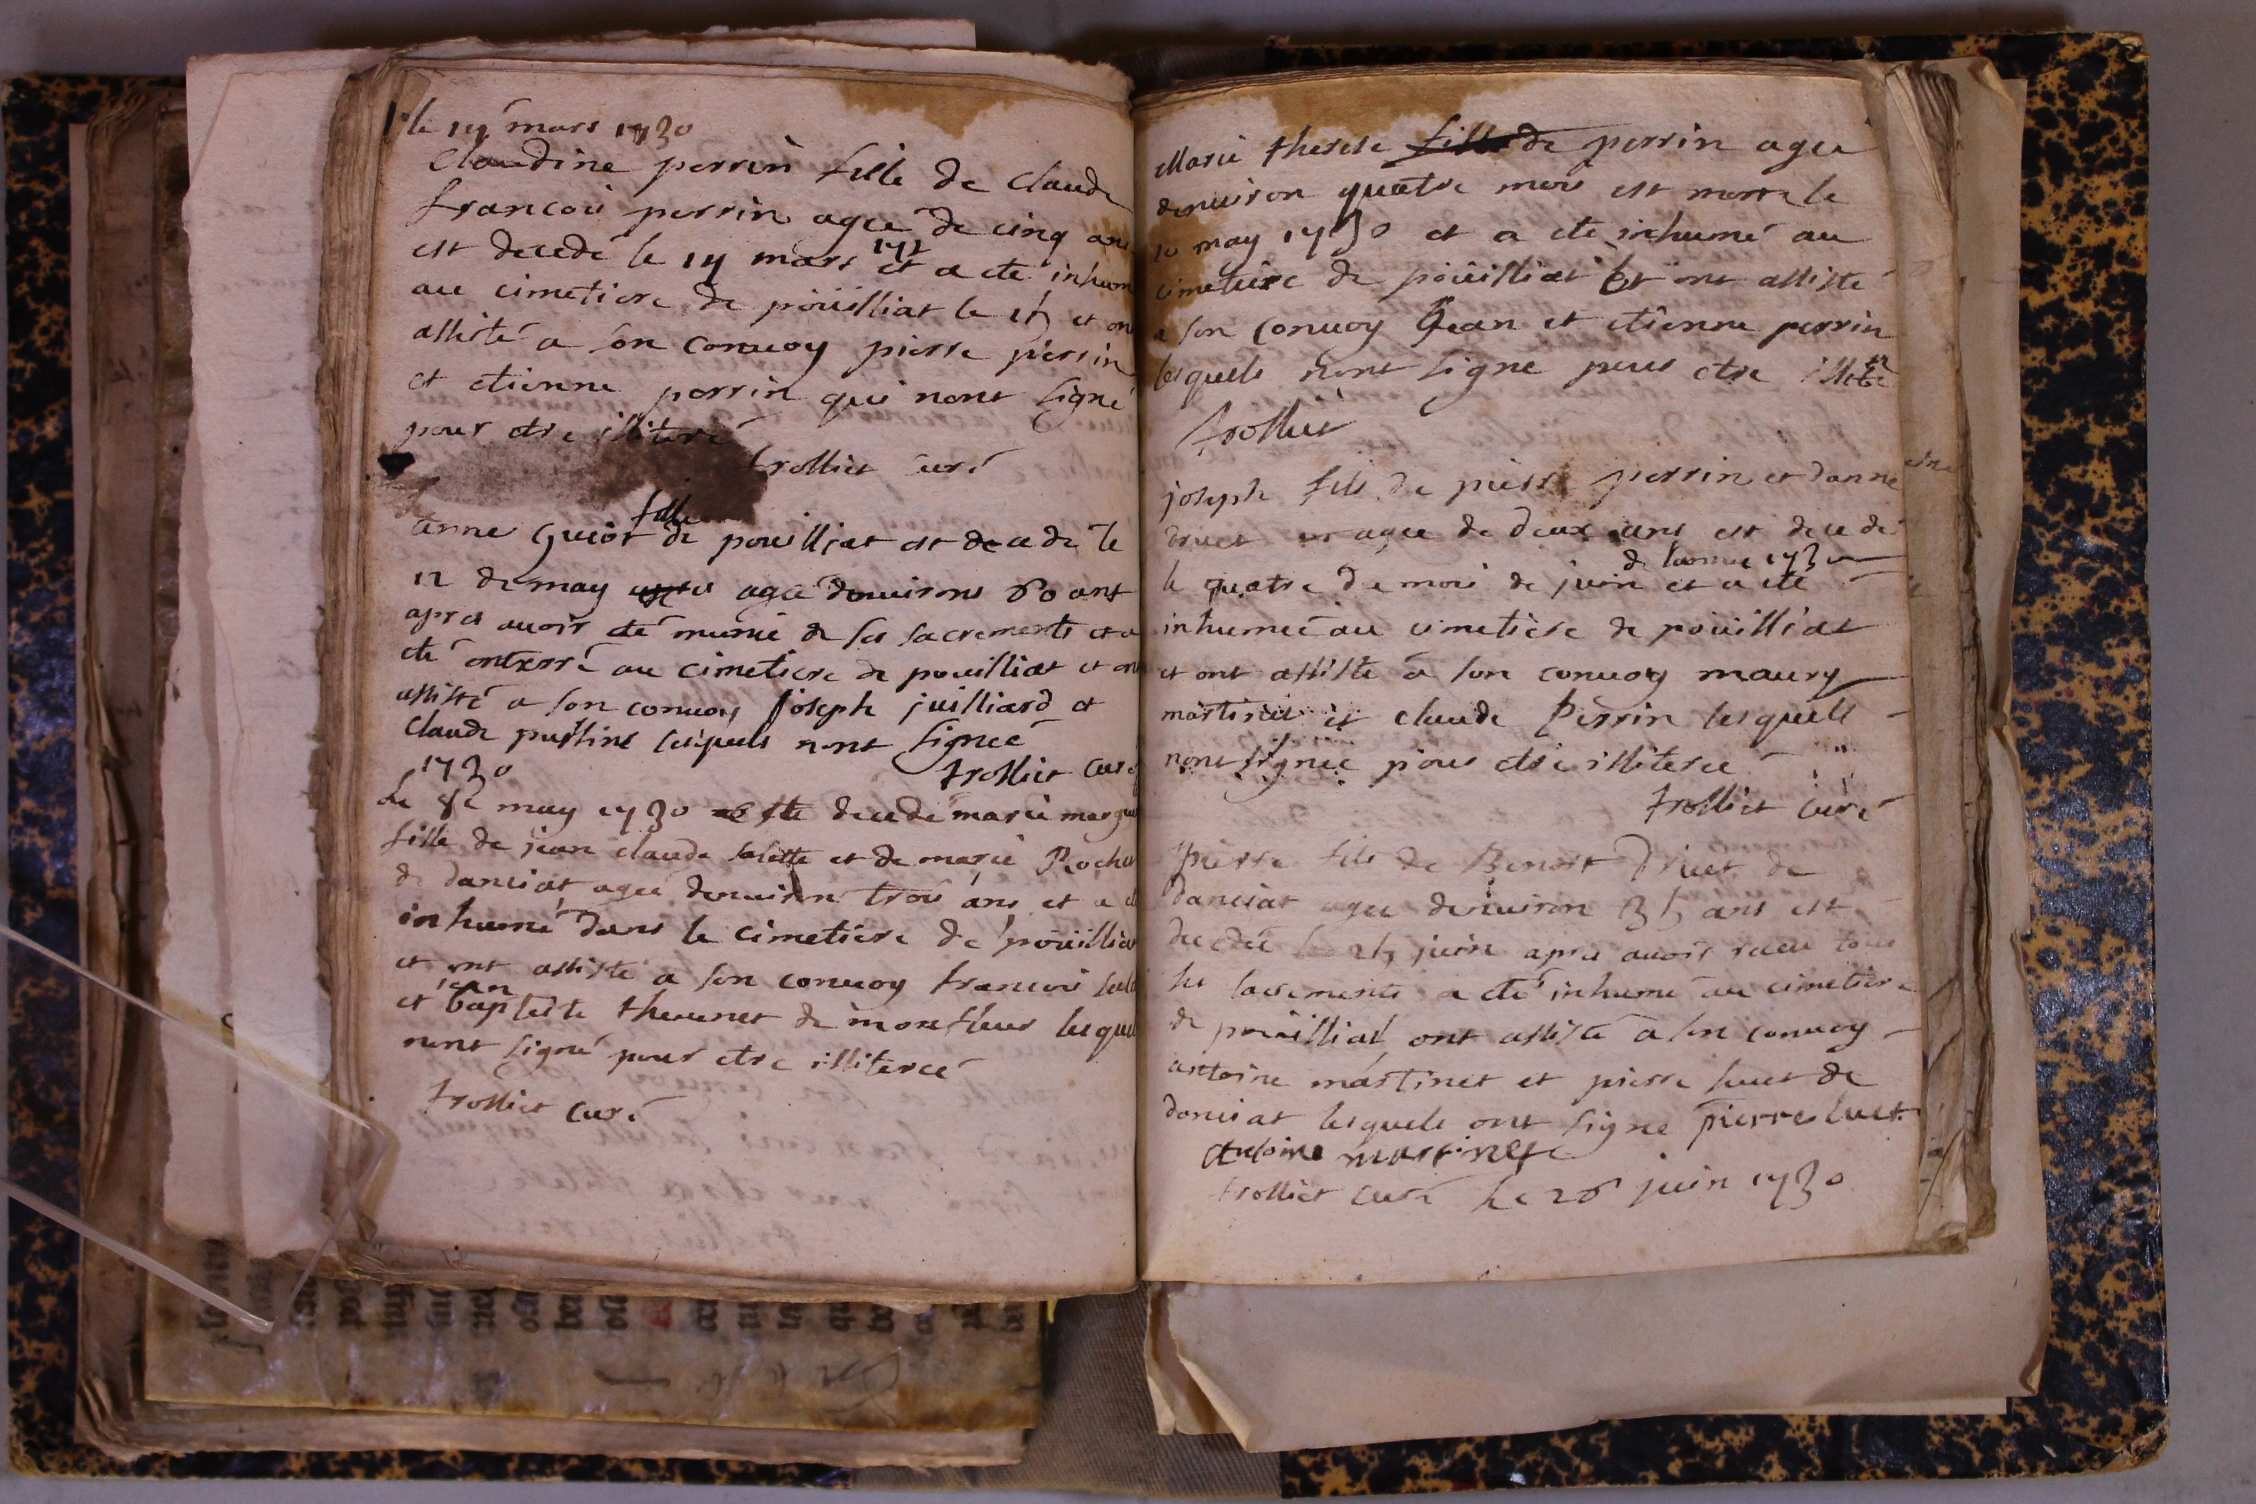 le 14 mars 1730
Claudine perrin fille de claude
francois perrin agee de cinq ans
est decedé le 14 mars et a eté inhum
au cimetiere de poüilliat le 15 et ont
assisté a son convoy pierre perrin
et etienne perrin qui nont signé
pour etre illiteré
trolliet curé
anne guiot fille de pouilliat est decede le
12 de may agee denvirons 60 ans
apres avoir eté munie de ses sacrements et a
eté enterré au cimetiere de pouilliat et ont
assisté a son convoy joseph juilliard et
claude lesquels nont signeé
1730 trolliet curé
Le 8e may 1730 este decedé marie margue
fille de jean claude salette et de marie Rochet
de danciat agee denviron trois ans et a eté
inhumé dans le cimetiere de poüilliat
et ont assisté a son convoy francois
et jean baptiste thevenet de monfleur lesquel
nont signé pour etre illitereé
trolliet curé
Marie therese fille de perrin agee
denviron quatre mois est morte le
10 may 1730 et a eté inhumé au
cimetiere de poüilliat Et ont assisté
a son convoy Jean et etienne perrin
lesquels nont signe pour etre
trolliet
joseph fils de pierre perrin et danne
druet agee de deux ans est decedé
le quatre du mois de juin de lannee 1730 et a eté
inhumeé au cimetiere de poüilliat
et ont assisté a son convoy maury
martinet et claude Perrin lesquels
nont signeé pour etre illitereé
trolliet curé
Pierre fils de Benoit Druet de
danciat agee denviron 35 ans est
decedeé le 25 juin apres avoir receu tous
les sacrements a eté inhumé au cimetiere
de poüilliat ont assisté a son convoy
antoine martinet et pierre luet de
danciat lesquels ont signe pierre luet
Antoine martinet
trolliet curé Le 26 juin 1730